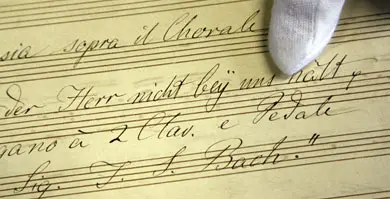 sia sopra il Chorale
der Herr nicht beÿ uns hält
gano à 2 Clav. e Pedale
Sig. J. S. Bach."